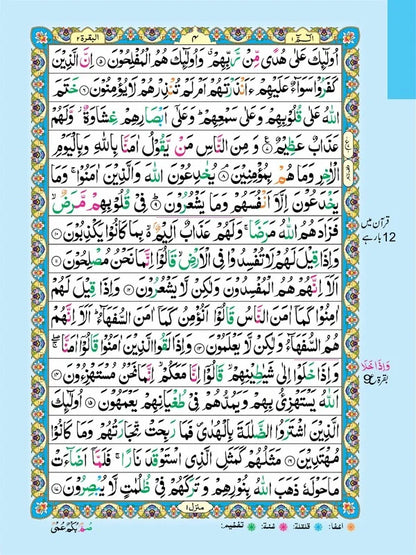 الٓمّٓ ۱
۴
البقرة ۲
اُولٰٓئِكَ عَلٰى هُدًى مِّنْ رَّبِّهِمْ ۗ وَاُولٰٓئِكَ هُمُ الْمُفْلِحُوْنَ ۝۵ اِنَّ الَّذِيْنَ
كَفَرُوْا سَوَآءٌ عَلَيْهِمْ ءَاَنْذَرْتَهُمْ اَمْ لَمْ تُنْذِرْهُمْ لَا يُؤْمِنُوْنَ ۝۶ خَتَمَ
اللّٰهُ عَلٰى قُلُوْبِهِمْ وَعَلٰى سَمْعِهِمْ ؕ وَعَلٰٓى اَبْصَارِهِمْ غِشَاوَةٌ ۫ وَّلَهُمْ
عَذَابٌ عَظِيْمٌ ۝۷ وَمِنَ النَّاسِ مَنْ يَّقُوْلُ اٰمَنَّا بِاللّٰهِ وَبِالْيَوْمِ
الْاٰخِرِ وَمَا هُمْ بِمُؤْمِنِيْنَ ۝۸ يُخٰدِعُوْنَ اللّٰهَ وَالَّذِيْنَ اٰمَنُوْا ۚ وَمَا
يَخْدَعُوْنَ اِلَّاۤ اَنْفُسَهُمْ وَمَا يَشْعُرُوْنَ ۝۹ فِيْ قُلُوْبِهِمْ مَّرَضٌ ۙ
فَزَادَهُمُ اللّٰهُ مَرَضًا ۚ وَلَهُمْ عَذَابٌ اَلِيْمٌۢ ۙ بِمَا كَانُوْا يَكْذِبُوْنَ ۝۱۰
وَاِذَا قِيْلَ لَهُمْ لَا تُفْسِدُوْا فِى الْاَرْضِ ۙ قَالُوْٓا اِنَّمَا نَحْنُ مُصْلِحُوْنَ ۝۱۱
اَلَاۤ اِنَّهُمْ هُمُ الْمُفْسِدُوْنَ وَلٰكِنْ لَّا يَشْعُرُوْنَ ۝۱۲ وَاِذَا قِيْلَ لَهُمْ
اٰمِنُوْا كَمَاۤ اٰمَنَ النَّاسُ قَالُوْٓا اَنُؤْمِنُ كَمَاۤ اٰمَنَ السُّفَهَآءُ ؕ اَلَاۤ اِنَّهُمْ
هُمُ السُّفَهَآءُ وَلٰكِنْ لَّا يَعْلَمُوْنَ ۝۱۳ وَاِذَا لَقُوا الَّذِيْنَ اٰمَنُوْا قَالُوْٓا اٰمَنَّا ۚ
وَاِذَا خَلَوْا اِلٰى شَيٰطِيْنِهِمْ ۙ قَالُوْٓا اِنَّا مَعَكُمْ ۙ اِنَّمَا نَحْنُ مُسْتَهْزِءُوْنَ ۝۱۴
اَللّٰهُ يَسْتَهْزِئُ بِهِمْ وَيَمُدُّهُمْ فِيْ طُغْيَانِهِمْ يَعْمَهُوْنَ ۝۱۵ اُولٰٓئِكَ
الَّذِيْنَ اشْتَرَوُا الضَّلٰلَةَ بِالْهُدٰى ۪ فَمَا رَبِحَتْ تِّجَارَتُهُمْ وَمَا كَانُوْا
مُهْتَدِيْنَ ۝۱۶ مَثَلُهُمْ كَمَثَلِ الَّذِى اسْتَوْقَدَ نَارًا ۚ فَلَمَّاۤ اَضَآءَتْ
مَا حَوْلَهٗ ذَهَبَ اللّٰهُ بِنُوْرِهِمْ وَتَرَكَهُمْ فِيْ ظُلُمٰتٍ لَّا يُبْصِرُوْنَ ۝۱۷
منزل ۱
صُمٌّۢ بُكْمٌ عُمْىٌ
قرآن میں
12 بار ہے
وَاِذَا خَلَا